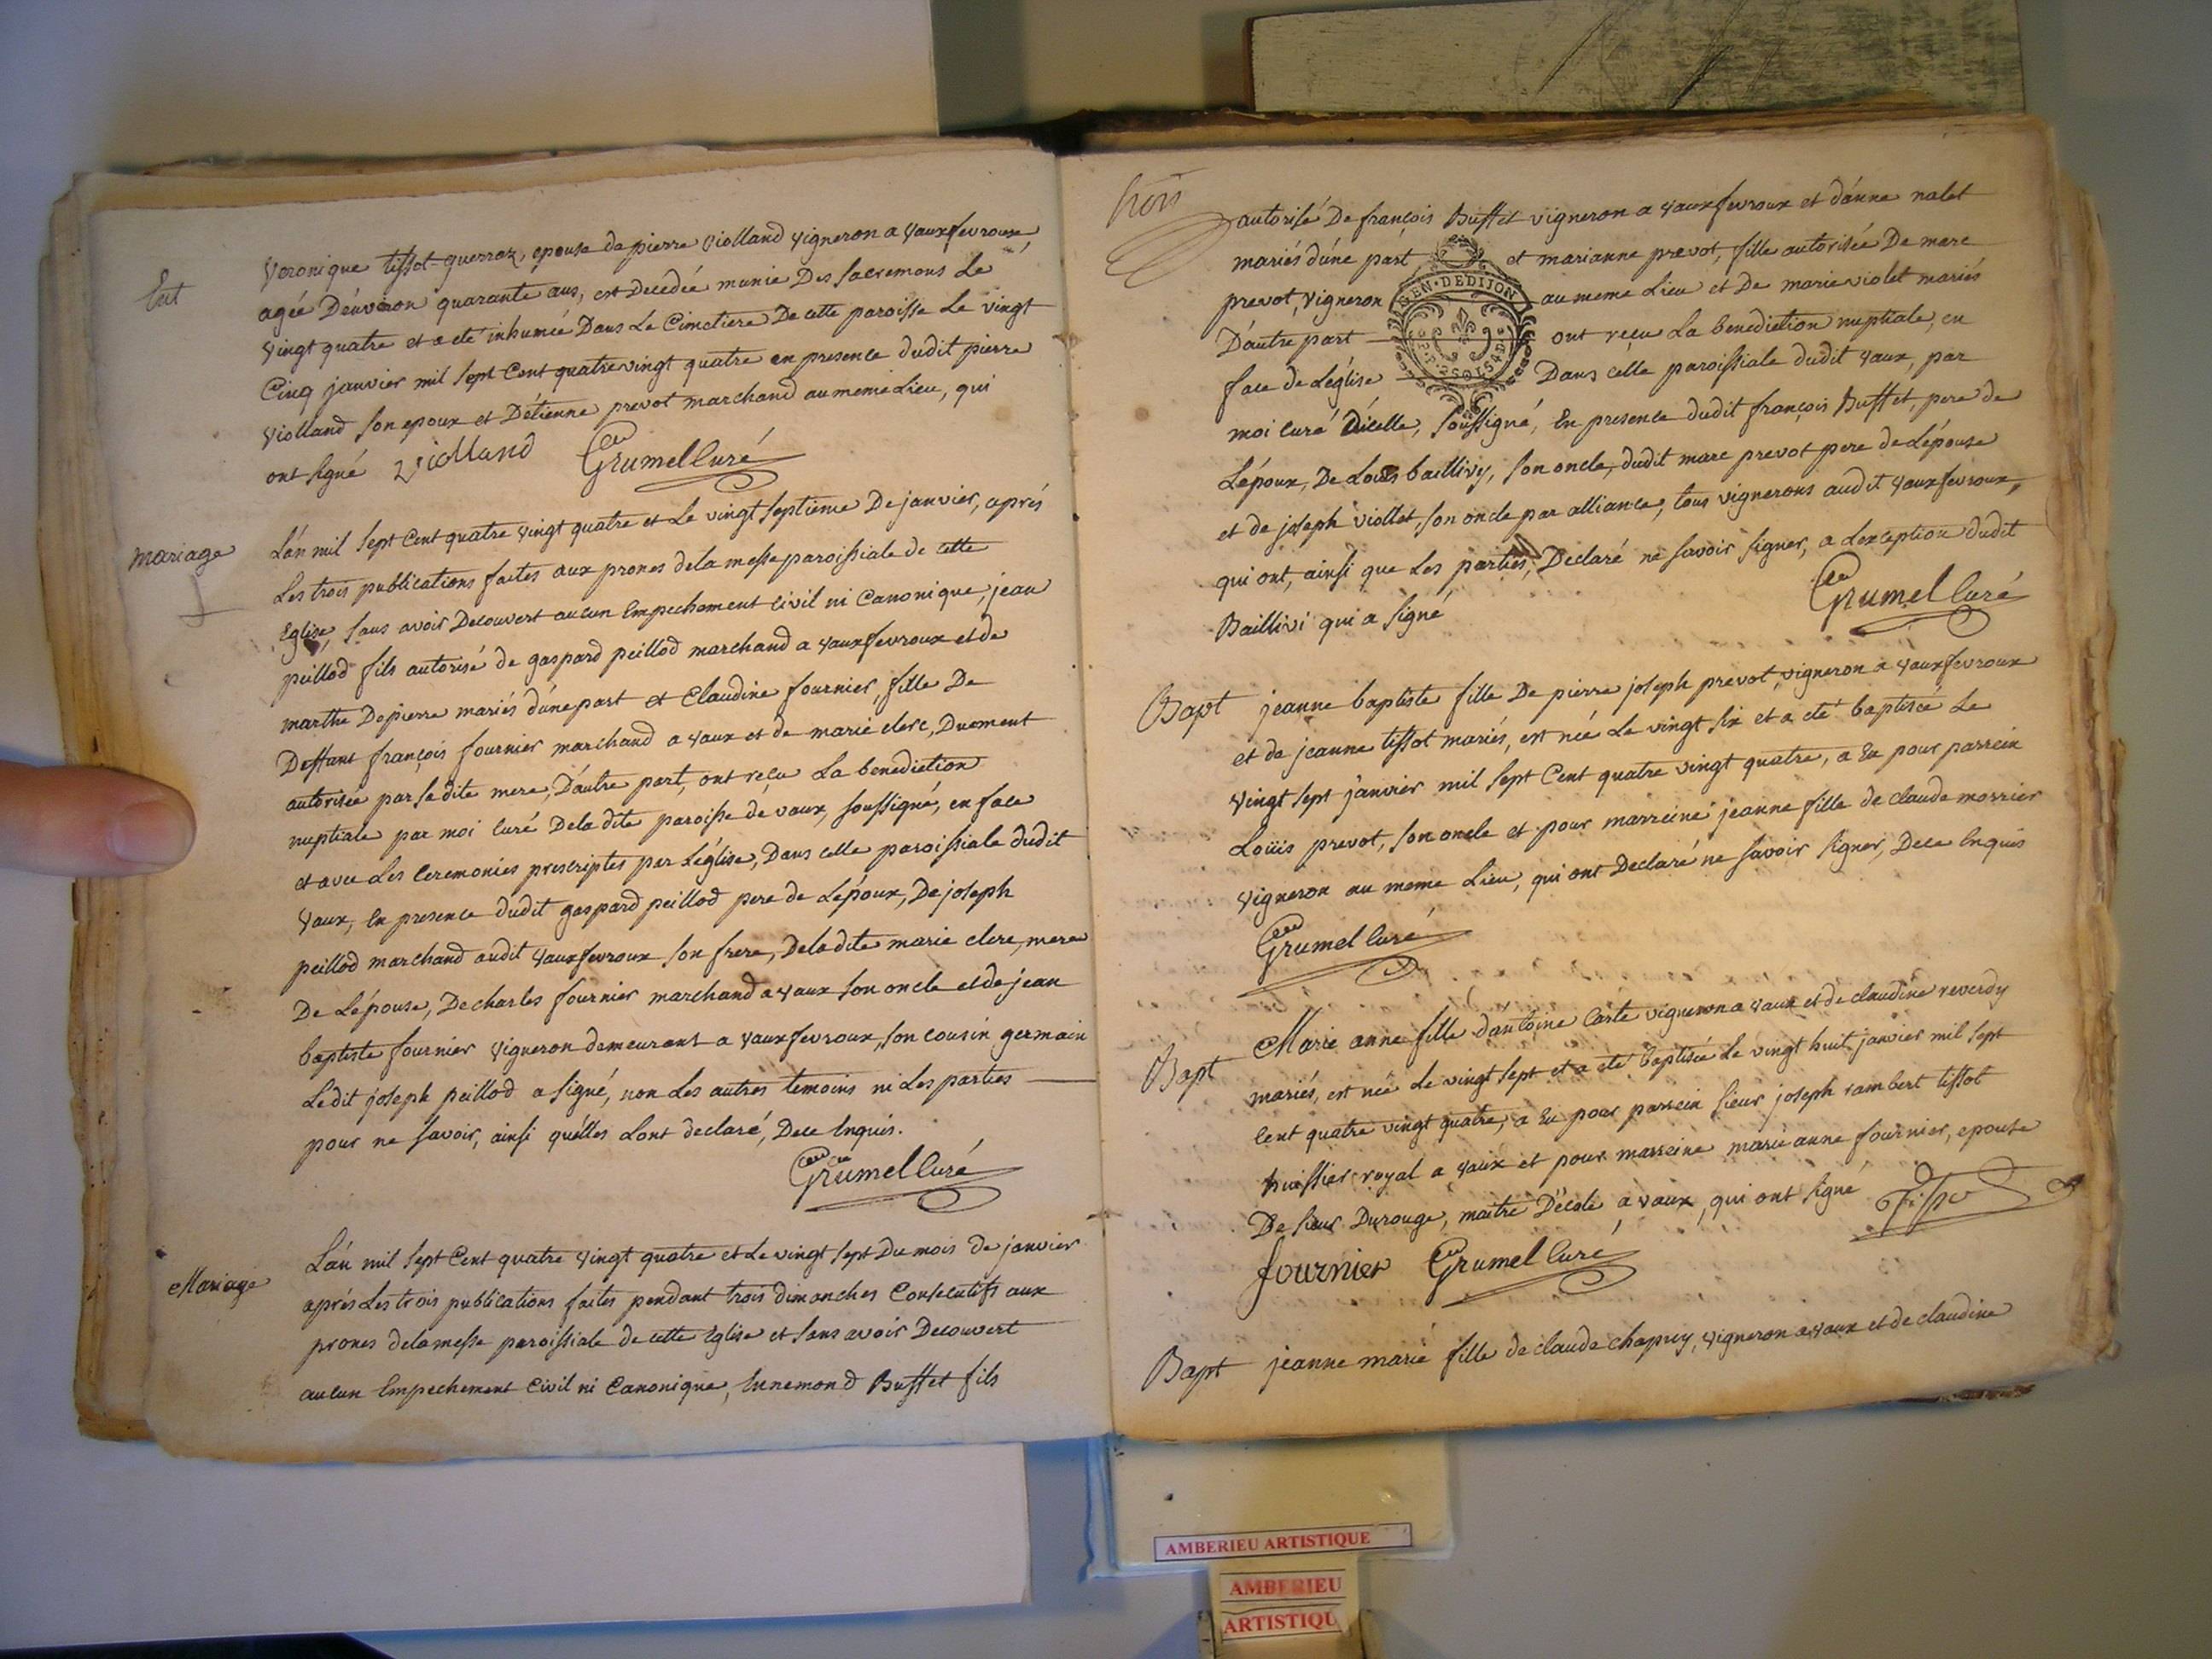 Ent
Veronique tissot-guerraz, epouse de pierre violland vigneron a vauxfevroux,
agée D'environ quarante ans, est Decedée munie Des sacremens Le
vingt quatre et a eté inhumée Dans Le Cimetiere De cette paroisse Le vingt
Cinq janvier mil sept Cent quatre vingt quatre en presence dudit pierre
violland son epoux et D'étienne prevot marchand au meme Lieu, qui
ont signé violland Grumel Curé
mariage
L'án mil sept Cent quatre vingt quatre et Le vingt septieme De janvier, aprés
Les trois publications faites aux prones de la messe paroissiale de cette
Eglise, sans avoir Decouvert aucun Empechement Civil ni Canonique, jean
peillod fils autorisé de gaspard peillod marchand a vauxfevroux et de
marthe Depierre mariés d'úne part et Claudine fournier, fille De
Deffunt françois fournier marchand a vaux et de marie clerc, Duement
autorisée par sadite mere, D'áutre part, ont reçu La benediction
nuptiale par moi Curé De la dite paroisse de vaux, soussigné, en face
et avec Les Ceremonies prescriptes par L'église, Dans celle paroissiale dudit
vaux, En presence dudit gaspard peillod pere de L'époux, De joseph
peillod marchand audit vauxfevroux son frere, De la dite marie clerc, mere
De L'épouse, De charles fournier marchand a vaux son oncle et de jean
baptiste fournier vigneron demeurant a vauxfevroux, son cousin germain
Ledit joseph peillod a signé, non Les autres temoins ni Les parties
pour ne savoir, ainsi qu'élles L'ont declaré, De ce Enquis.
Grumel Curé
Mariage
L'án mil sept Cent quatre vingt quatre et Le vingt sept Du mois de janvier
aprés Les trois publications faites pendant trois dimanches Consecutifs aux
prones de la messe paroissiale de cette Eglise et sans avoir Decouvert
aucun Empechement Civil ni Canonique, Ennemond Buffet fils
trois
autorisé De françois Buffet vigneron a vauxfevroux et d'ánne nalet
mariés d'úne part et marianne prevot, fille autorisée De marc
prevot, vigneron au meme Lieu et De marie violet mariés
D'áutre part ont reçu La benediction nuptiale, en
face de L'église Dans celle paroissiale dudit vaux, par
GEN. DE DIJON
moi Curé D'icelle, soussigné, En presence dudit françois Buffet, pere de
L'époux, De Louis baillivy, son oncle, dudit marc prevot pere de L'épouse
et de joseph viollet, son oncle par alliance, tous vignerons audit vauxfevroux,
qui ont, ainsi que Les parties, Declaré ne savoir signer, a L'exception dudit
Baillivi qui a signé Grumel Curé
Bapt
jeanne baptiste fille De pierre joseph prevot, vigneron a vauxfevroux
et de jeanne tissot mariés, est née Le vingt six et a eté baptisée Le
vingt sept janvier mil sept Cent quatre vingt quatre, a Eu pour parrein
Loüis prevot, son oncle et pour marreine jeanne fille de claude morrier
vigneron au meme Lieu, qui ont Declaré ne savoir signer, De ce Enquis
Grumel Curé
Bapt
Marie anne fille d'antoine Carte vigneron a vaux et de claudine reverdy
mariés, est née Le vingt sept et a eté baptisée Le vingt huit janvier mil sept
Cent quatre vingt quatre, a Eu pour parrein sieur joseph rambert tissot
huissier royal a vaux et pour marreine marie anne fournier, epouse
De sieur Durouge, maitre D'école a vaux, qui ont signé
fournier Grumel Curé
Bapt
jeanne marie fille de claude chapuy, vigneron a vaux et de claudine
AMBERIEU ARTISTIQUE
AMBERIEU
ARTISTIQU